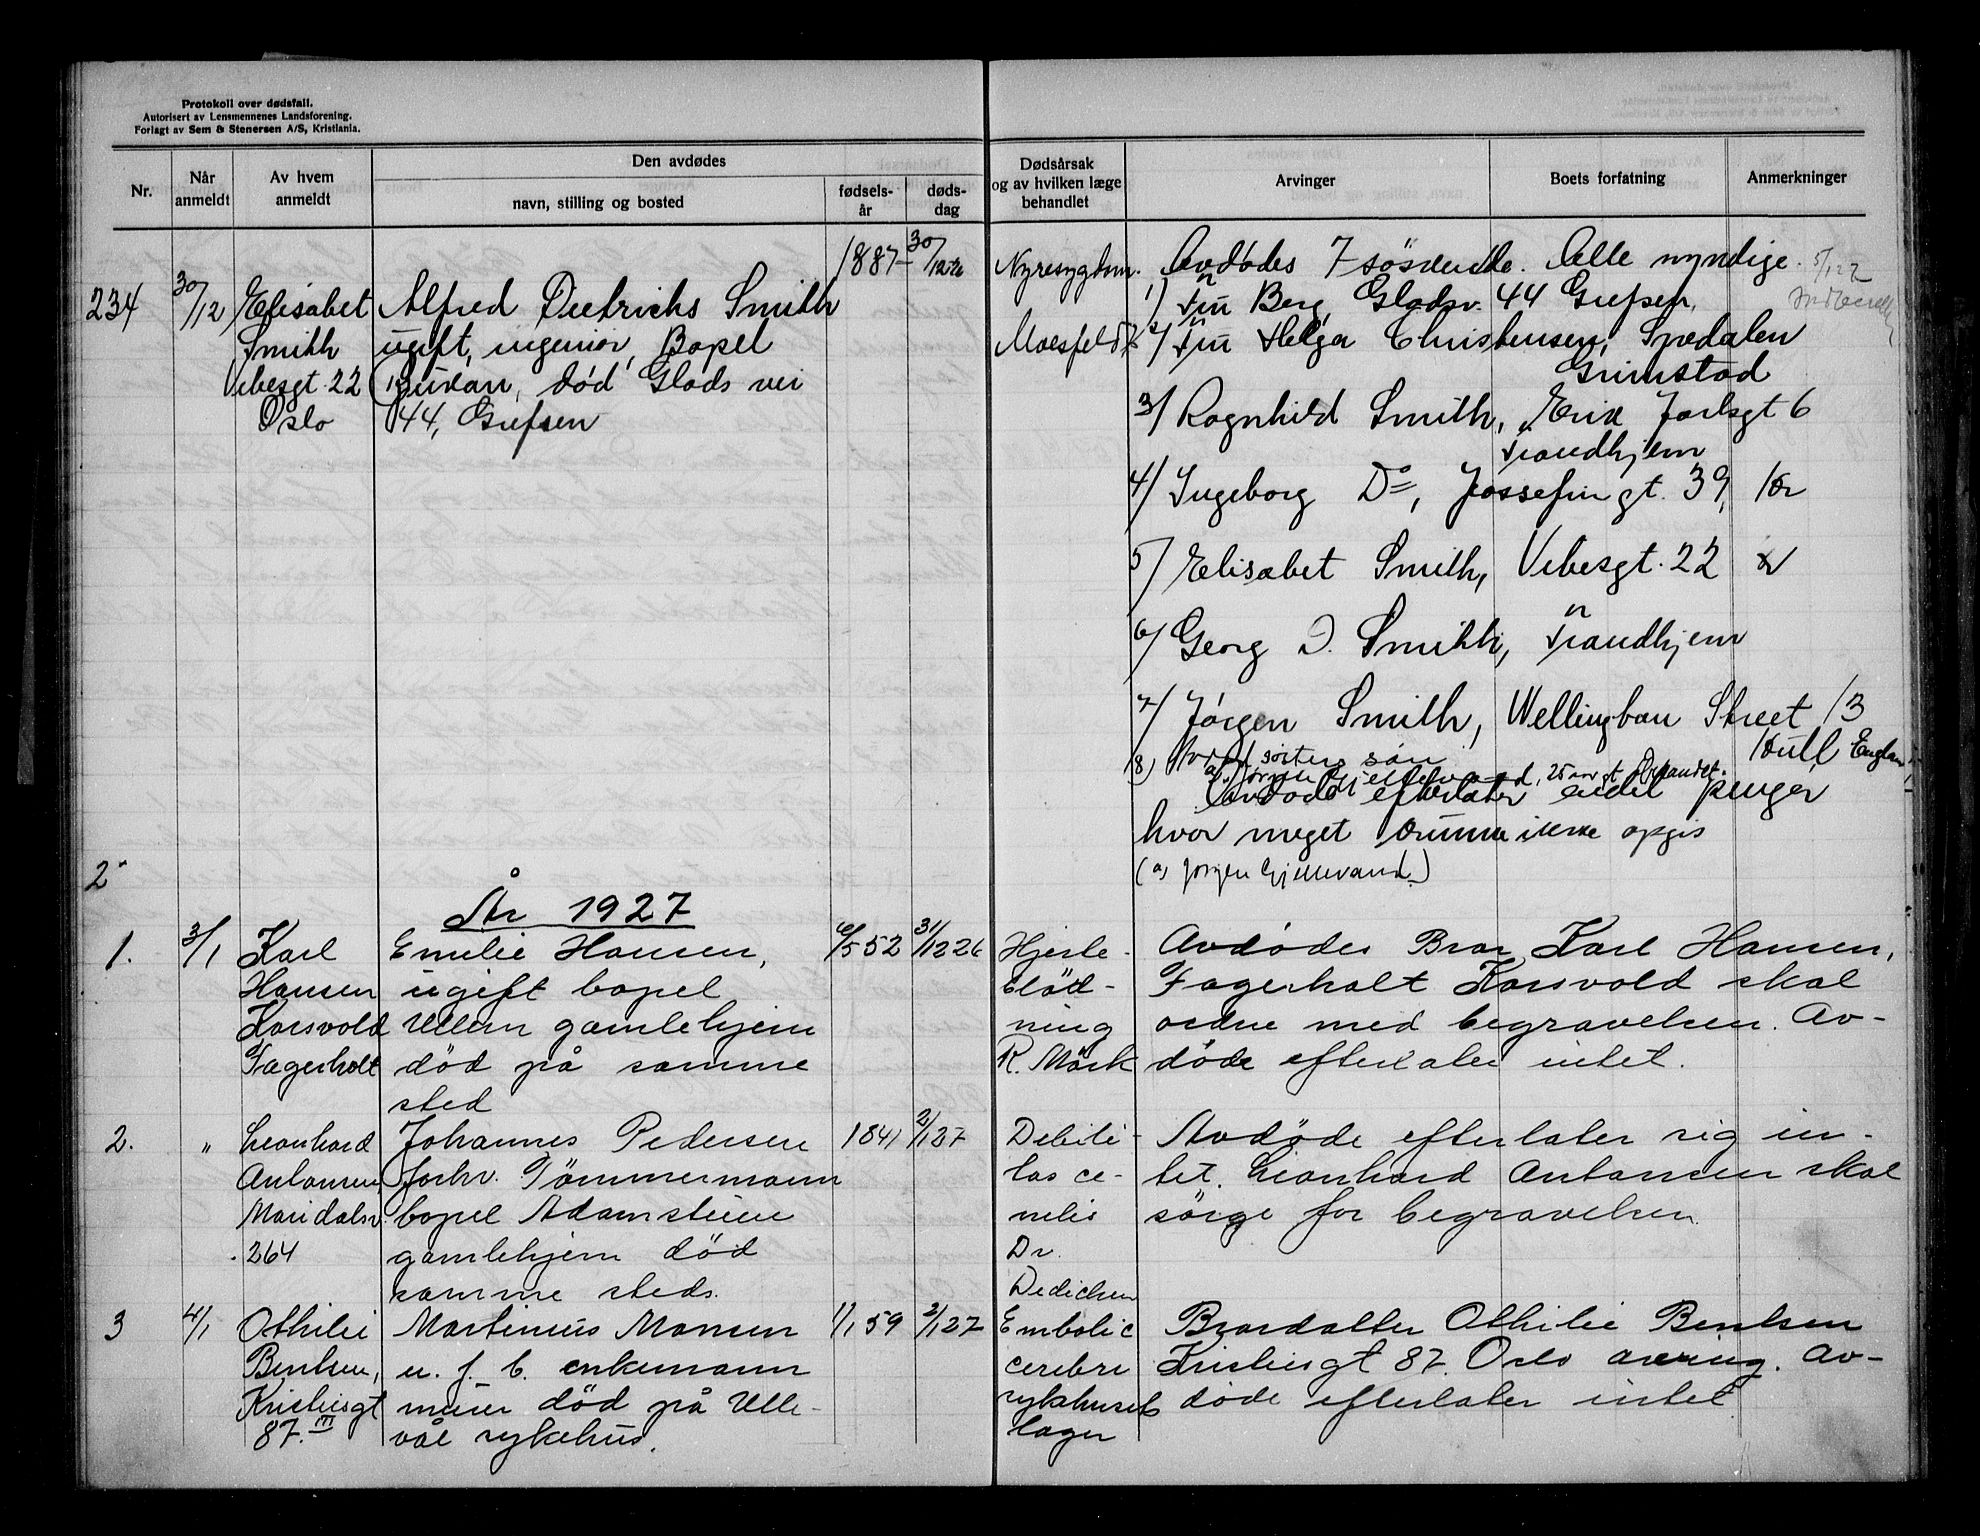 Protokoll over dødsfall.
Autorisert av Lensmennenes Landsforening.
Forlagt av Sem & Stenersen A/S, Kristiania.
Nr.
Når
anmeldt
Av hvem
anmeldt
Den avdødes
navn, stilling og bosted
fødsels-
år
døds-
dag
Dødsårsak
og av hvilken læge
behandlet
Arvinger
Boets forfatning
Anmerkninger
234
30/12
Elisabet
Smith
Vibesgt. 22
Oslo
Alfred Dietrichs Smith
ugift, ingeniør, Bopel
død Glads vei
44, Grefsen
1887
30/12 26
Nyresygdom.
Avdødes 7 søskende. Alle myndige.
1) Fru Berg, Gladsv. 44 Grefsen.
2) Fru Helga Christensen,
Grimstad
3) Ragnhild Smith, Erik Jarlsgt 6
Trondhjem
4) Ingeborg Do, Jossefingt. 39, Kr
5) Elisabet Smith, Vibesgt. 22
6) Georg D. Smith, Trondhjem
7) Jørgen Smith, Street 13
Hull England
8) søsters søn
Avdøde efterlater endel penger
hvor meget kunne ikke opgis
(a, Jørgen Gjellevand.)
2
År 1927
1.
3/1
Karl
Hansen
Korsvold
Fagerholt
Emilie Hansen,
ugift bopel
Ullern gamlehjem
død på samme
sted
6/5 52
31/12 26
Hjerte-
blød-
ning
R. Mørk
Avdødes Bror Karl Hansen,
Fagerholt Korsvold skal
ordne med begravelsen. Av-
døde efterlater intet.
2.
"
Leonhard
Antonsen,
Maridalsv.
264
Johannes Pedersen
forhv. Tømmermann
bopel Adamstuen
gamlehjem død
samme steds.
1841
2/1 27
Debili-
tas ce-
nelis
Dr.
Dedichen
Avdøde efterlater sig in-
tet. Leonhard Antonsen skal
sørge for begravelsen.
3
4/1
Othilie
Bentsen,
Kristiesgt
87. III
Martinius Monsen
u. f. b. enkemann
murer død på Ulle-
vål sykehus.
1/1 59
2/1 27
Embolic
cerebri
sykehusets
lager
Brordatter Othilie Bentsen
Kristiesgt 87. Oslo arving. Av-
døde efterlater intet